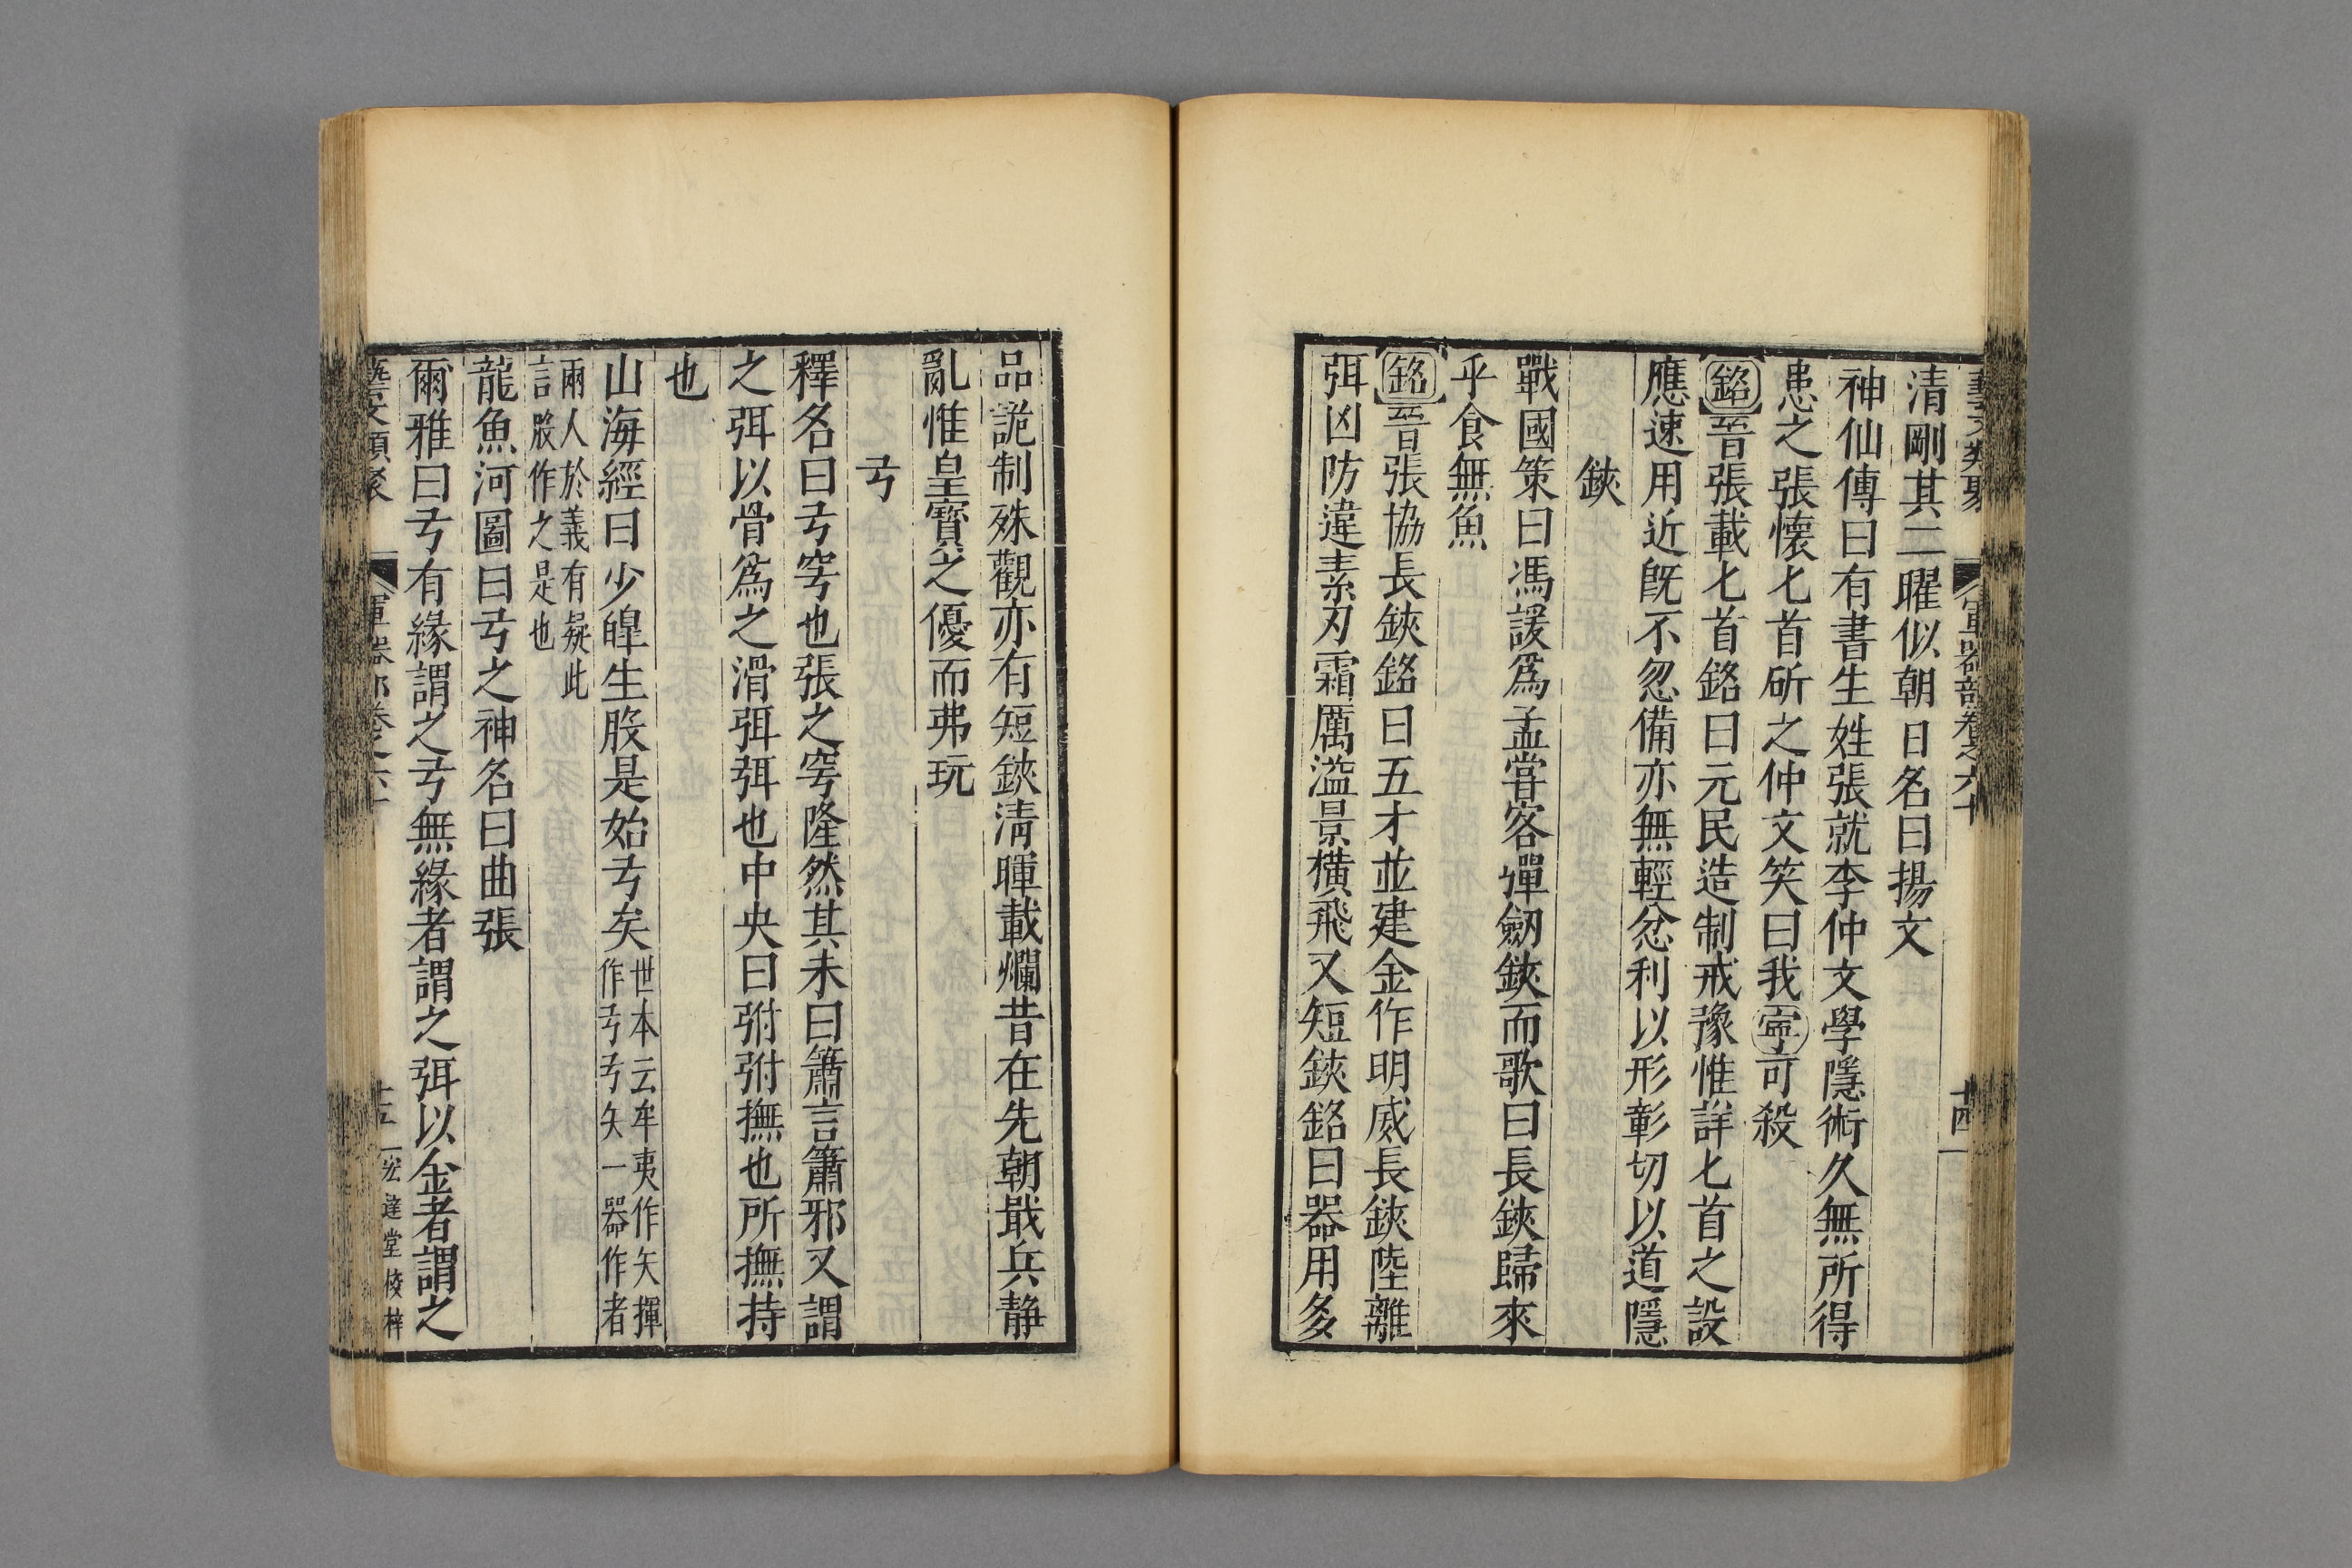 藝文類聚 軍器部卷之六十 十四
清剛其二曜似朝日名曰揚文
神仙傳曰有書生姓張就李仲文學隱術久無所得
患之張懷匕首斫之仲文笑曰我寧可殺
銘晉張載匕首銘曰元民造制戒豫惟詳匕首之設
應速用近旣不忽備亦無輕忿利以形彰切以道隱
鋏
戰國策曰馮諼爲孟甞客彈劒鋏而歌曰長鋏歸來
乎食無魚
銘晉張協長鋏銘曰五才並建金作明威長鋏陸離
弭凶防違素刃霜厲溢景橫飛又短鋏銘曰器用多
品詭制殊觀亦有短鋏清暉載爛昔在先朝戢兵静
亂惟皇寶之優而弗玩
弓
釋名曰弓穹也張之穹隆然其末曰簫言簫邪又謂
之弭以骨爲之滑弭弭也中央曰弣弣撫也所撫持
也
山海經曰少皥生般是始弓矢世本云牟夷作矢揮
作弓弓矢一器作者
兩人於義有疑此
言般作之是也
龍魚河圖曰弓之神名曰曲張
爾雅曰弓有緣謂之弓無緣者謂之弭以金者謂之
藝文類聚 軍器部卷之六十 十五 宏達堂校梓